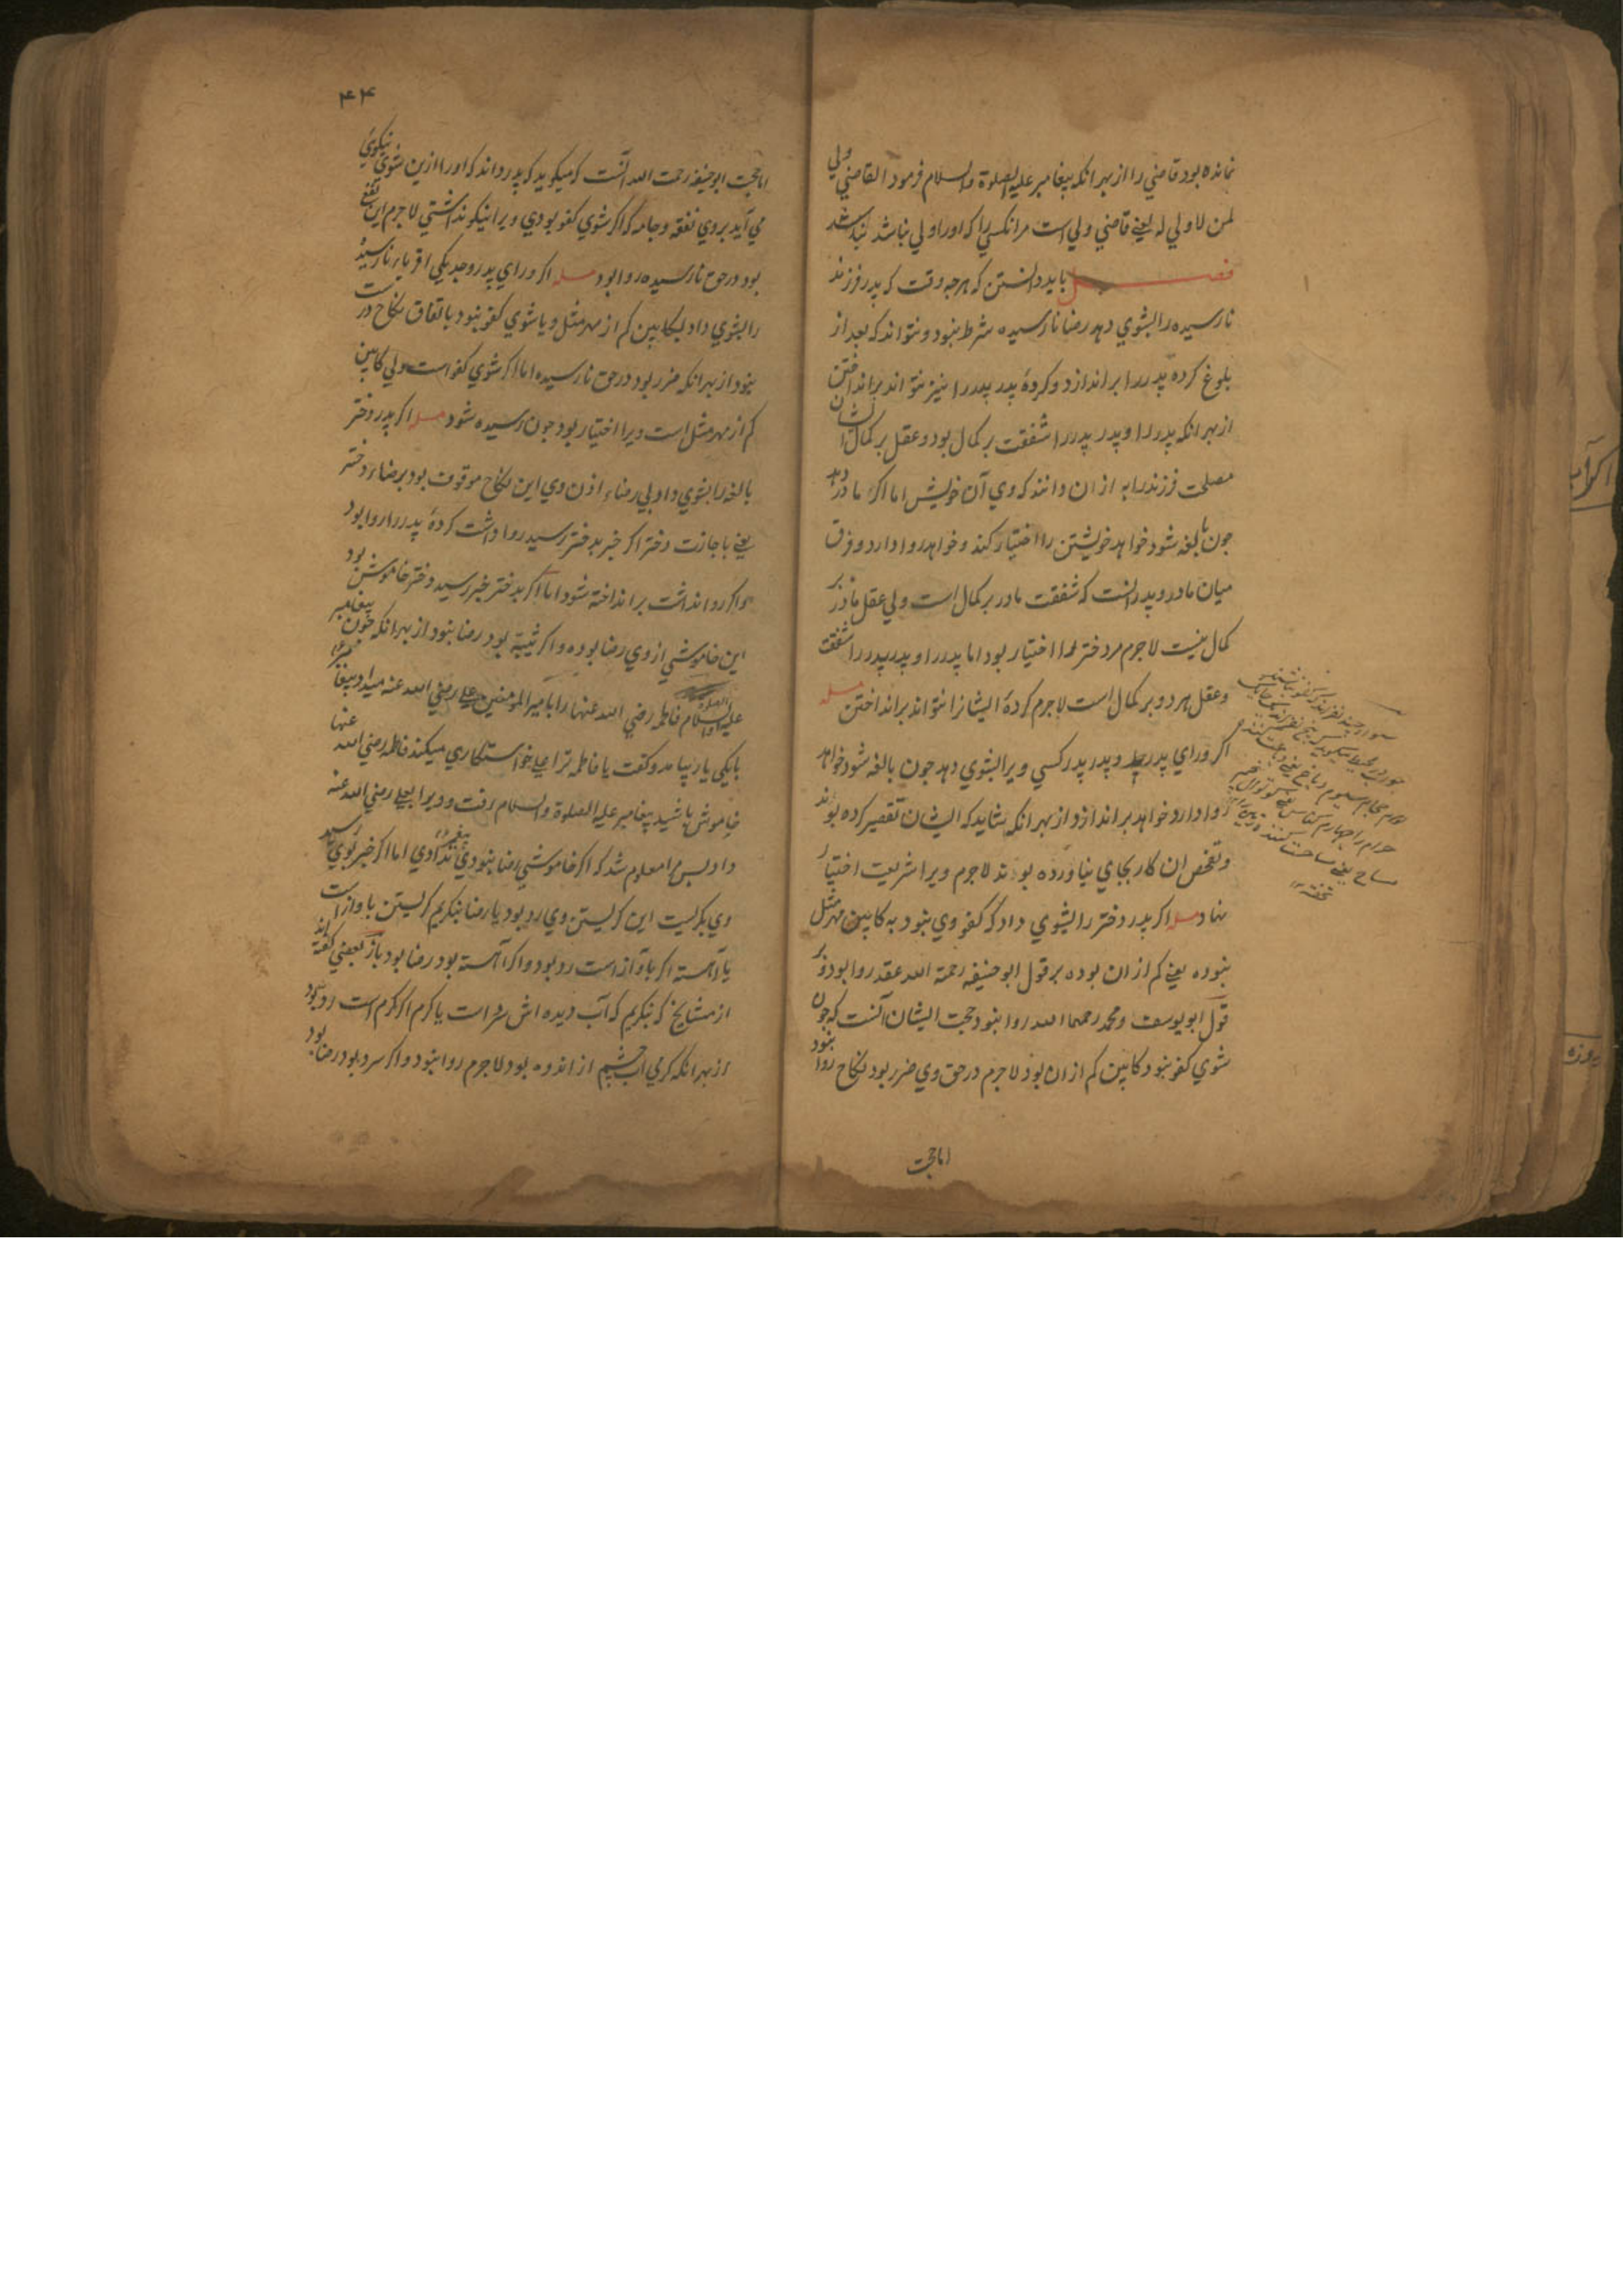 نمانده بود قاضي را از بهر انكه پيغامبر عليه الصلوة والسلام فرمود القاضي ولي
لمن لا ولي له يعني قاضي ولي است مرانكسي را كه اورا ولي نباشد
فصل بايد دانستن كه هرچه وقت كه پدر فرزند
نارسيده را بشوي دهد رضا نارسيده شرط نبود ونتواند كه بعد از
بلوغ كردهٔ پدر را براندازد وكردهٔ پدر پدر را نيز نتواند برانداختن
از بهر انكه پدر را وپدر پدر را شفقت بر كمال بود وعقل بر كمال ايشان
مصلحت فرزند را به از ان دانند كه وي آن خويش اما اكر مادر دهد
چون بالغه شود خواهد خويشتن را اختيار كند وخواهد روا دارد وفرق
ميان مادر وپدر انست كه شفقت مادر بر كمال است ولي عقل مادر بر
كمال نيست لاجرم مر دختر را اختيار بود اما پدر را وپدر پدر را شفقت
وعقل هر دو بر كمال است لاجرم كردهٔ ايشانرا نتواند برانداختن مسله
اكر وراي پدر وپدر پدر كسي ويرا بشوي دهد چون بالغه شود خواهد
روا دارد خواهد براندازد از بهر انكه شايد كه ايشان تقصير كرده بوند
وتفحص ان كار بجاي نياورده بوند لاجرم ويرا شريعت اختيار
نهاد مسله اكر پدر دختر را بشوي داد كه كفو وي نبود به كابين مهر مثل
نبوده يعني كم از ان بوده بر قول ابو حنيفه رحمة الله عقد روا بود وبر
قول ابو يوسف ومحمد رحمهما الله روا نبود حجت ايشان آنست كه چون
شوي كفو نبود كابين كم از ان بود لاجرم در حق وي ضرر بود نكاح روا نبود
اما حجت
۴۴
اما حجت ابو حنيفه رحمت الله آنست كه ميكويد كه پدر داند كه اورا ازين شوي نيكوئي
مي آيد بروي نفقه وجامه كه اكر شوي كفو بودي ويرا نيكو نداشتي لاجرم اين نفع
بود در حق نارسيده روا بود مسله اكر وراي پدر وجد يكي اقرباء نارسيده
را بشوي داد بكابين كم از مهر مثل ويا شوي كفو نبود باتفاق نكاح درست
نبود از بهر انكه ضرر بود در حق نارسيده اما اكر شوي كفو است ولي كابين
كم از مهر مثل است ويرا اختيار بود چون رسيده شود مسله اكر پدر دختر
بالغه را بشوي داد بي رضاء اذن وي اين نكاح موقوف بود برضاء دختر
يعني باجازت دختر اكر خبر بدختر رسيد روا داشت كردهٔ پدر را روا بود
واكر روا نداشت برانداخته شود اما اكر بدختر خبر رسيد دختر خاموش بود
اين خاموشي از وي رضا بوده واكر ثيبه بود رضا نبود از بهر انكه چون پيغامبر
عليه الصلوة والسلام فاطمه رضي الله عنها را بامير المومنين علي رضي الله عنه ميداد پيغامبر
بيامد وكفت يا فاطمه ترا علي خواستكاري ميكند فاطمه رضي الله عنها
خاموش باشيد پيغامبر عليه الصلوة والسلام رفت وويرا بعلي رضي الله عنه
داد پس معلوم شد كه اكر خاموشي رضا نبودي پيغمبر ندادي اما اكر خبر بوي رسيد
وي بكريست اين كريستن وي رد بود يا رضا بنكريم كريستن باواز است
يا آهسته اكر باواز است رد بود واكر آهسته بود رضا بود باز بعضي كفته اند
از مشايخ كه بنكريم كه آب ديده اش سرد است يا كرم اكر كرم است رد بود
از بهر انكه كرمي آب چشم از اندوه بود لاجرم روا نبود واكر سرد بود رضا بود